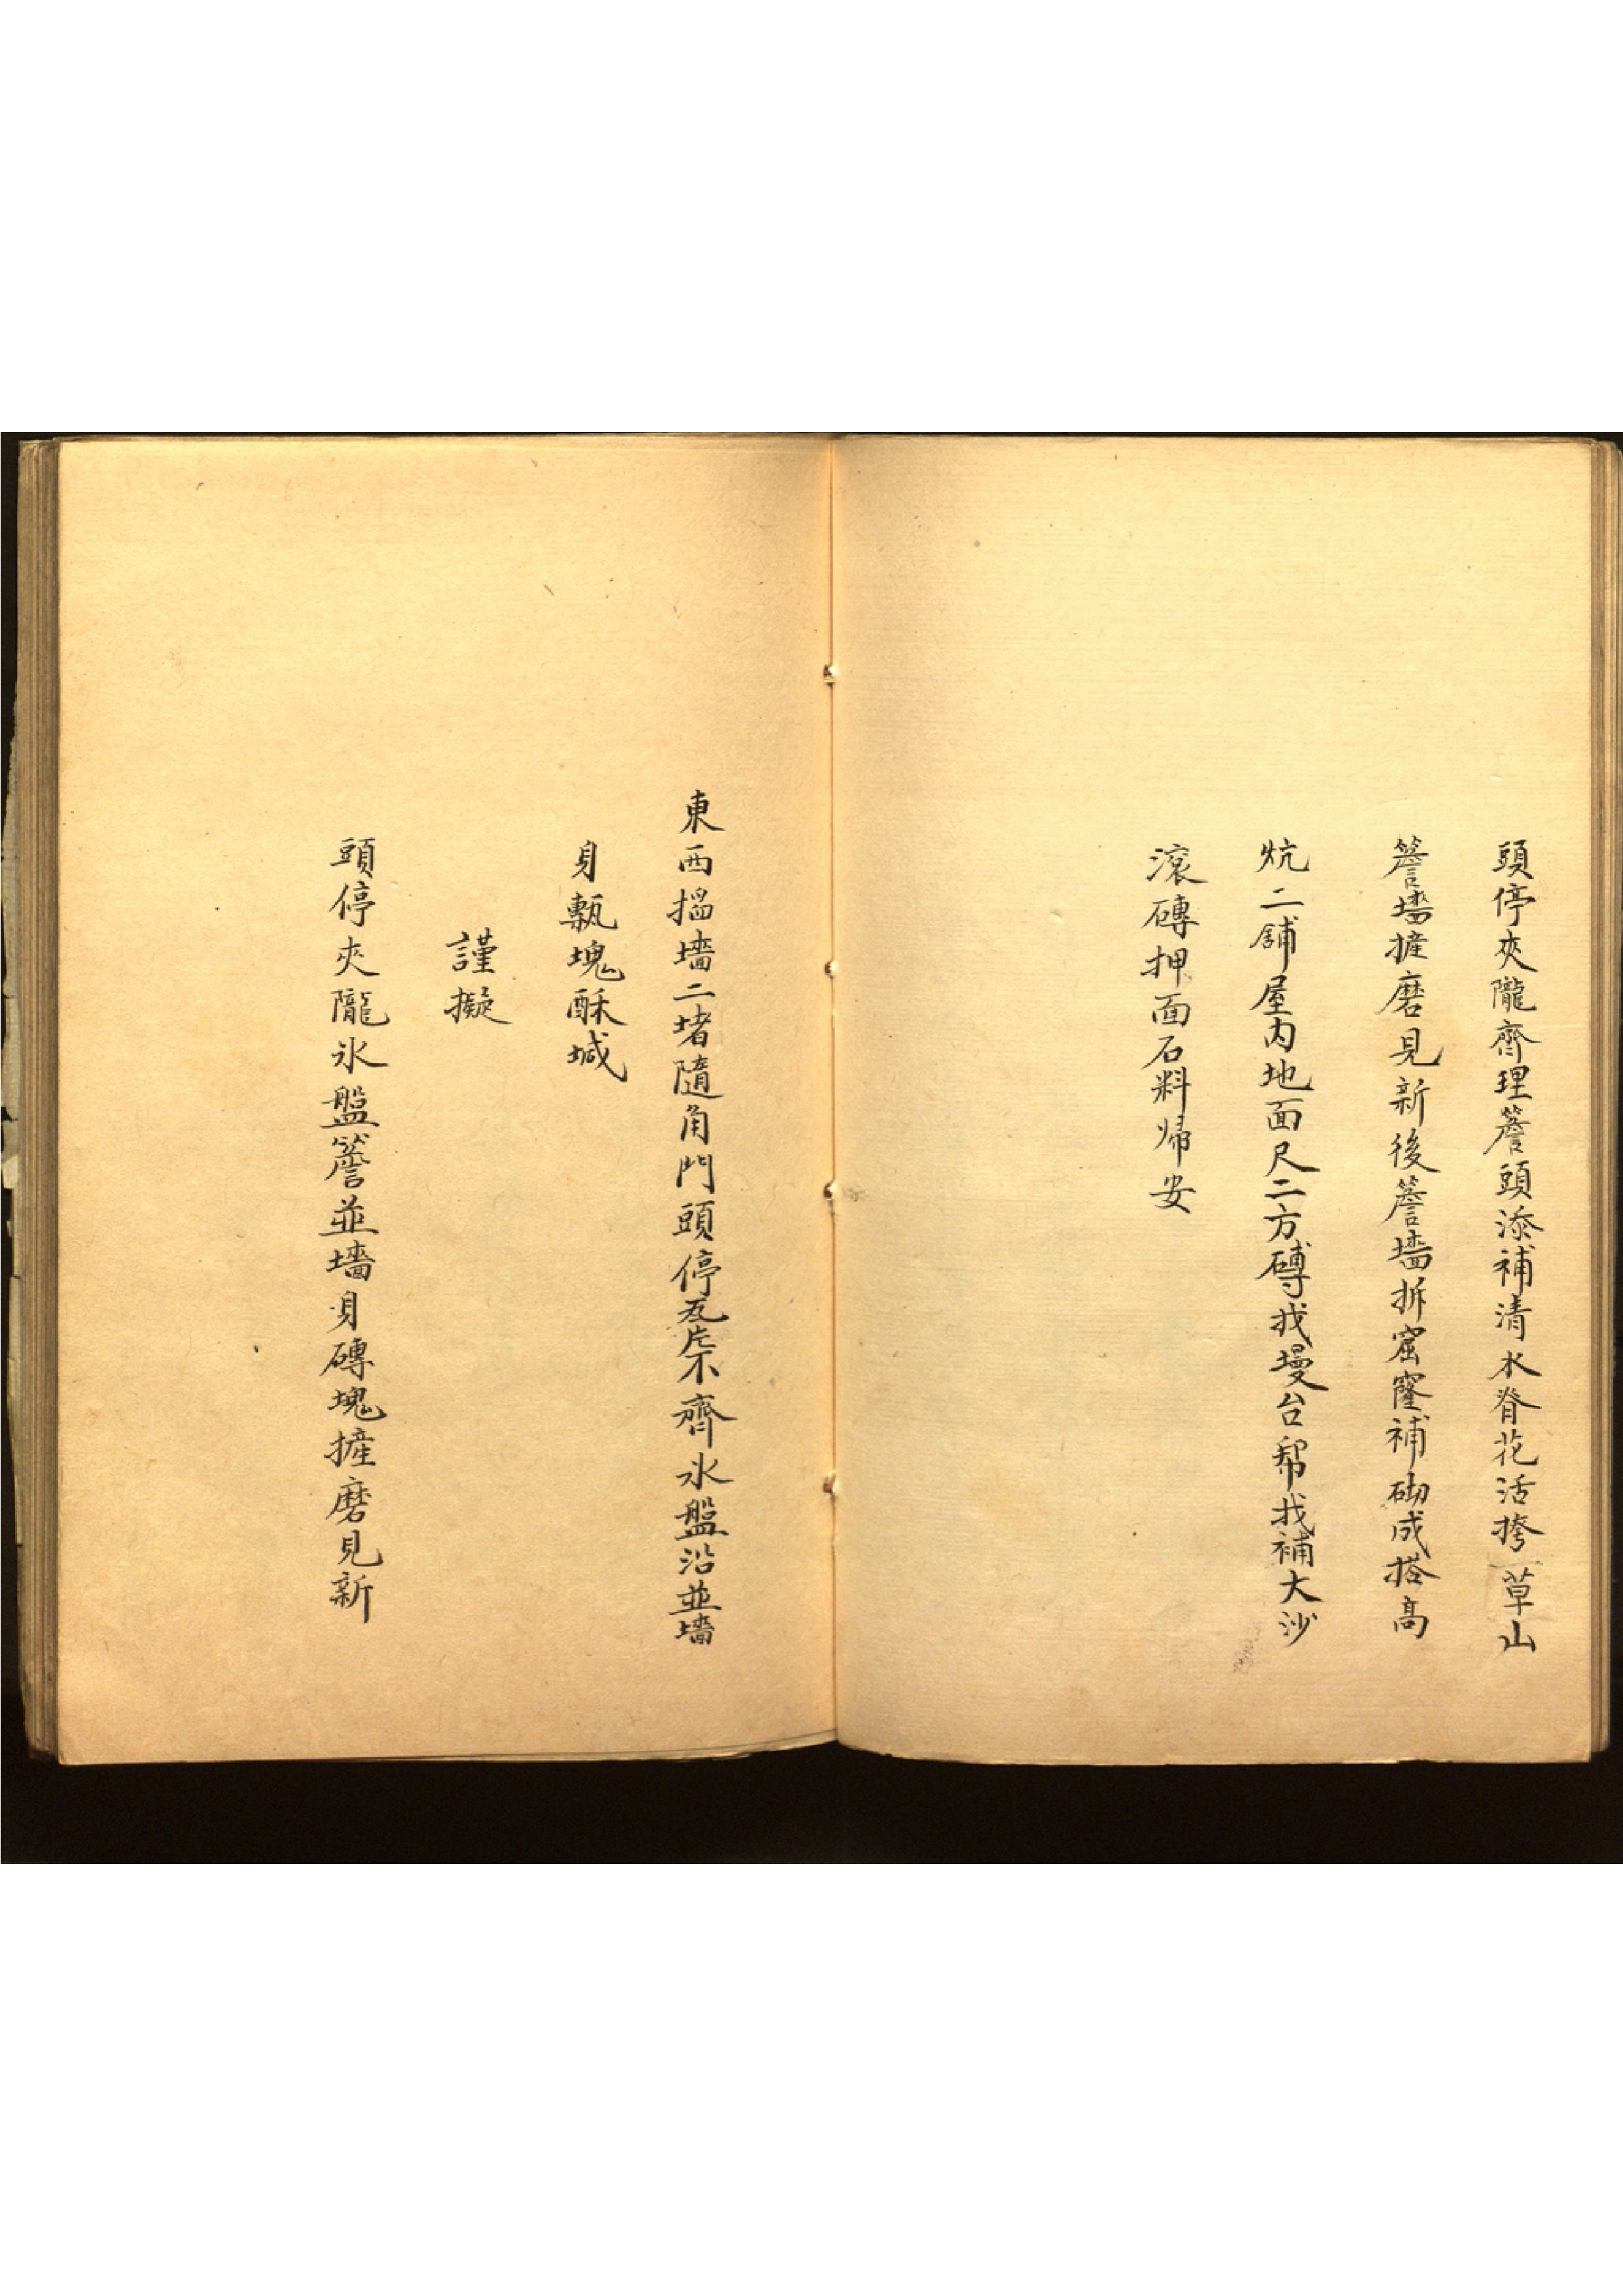 頭停夾隴齊理簷頭添補清水脊花活搀草山
簷墻摌磨見新後簷墻拆窟窿補砌成搭高
炕二舖屋内地面尺二方磚找墁台幇找補大沙
滚磚押面石料㷌安
東西搵墻二堵隨角門頭停瓦片不齊氷盤沿並墻
身甎塊酥堿
謹擬
頭停夾隴氷盤簷並墻身磚塊摌磨見新